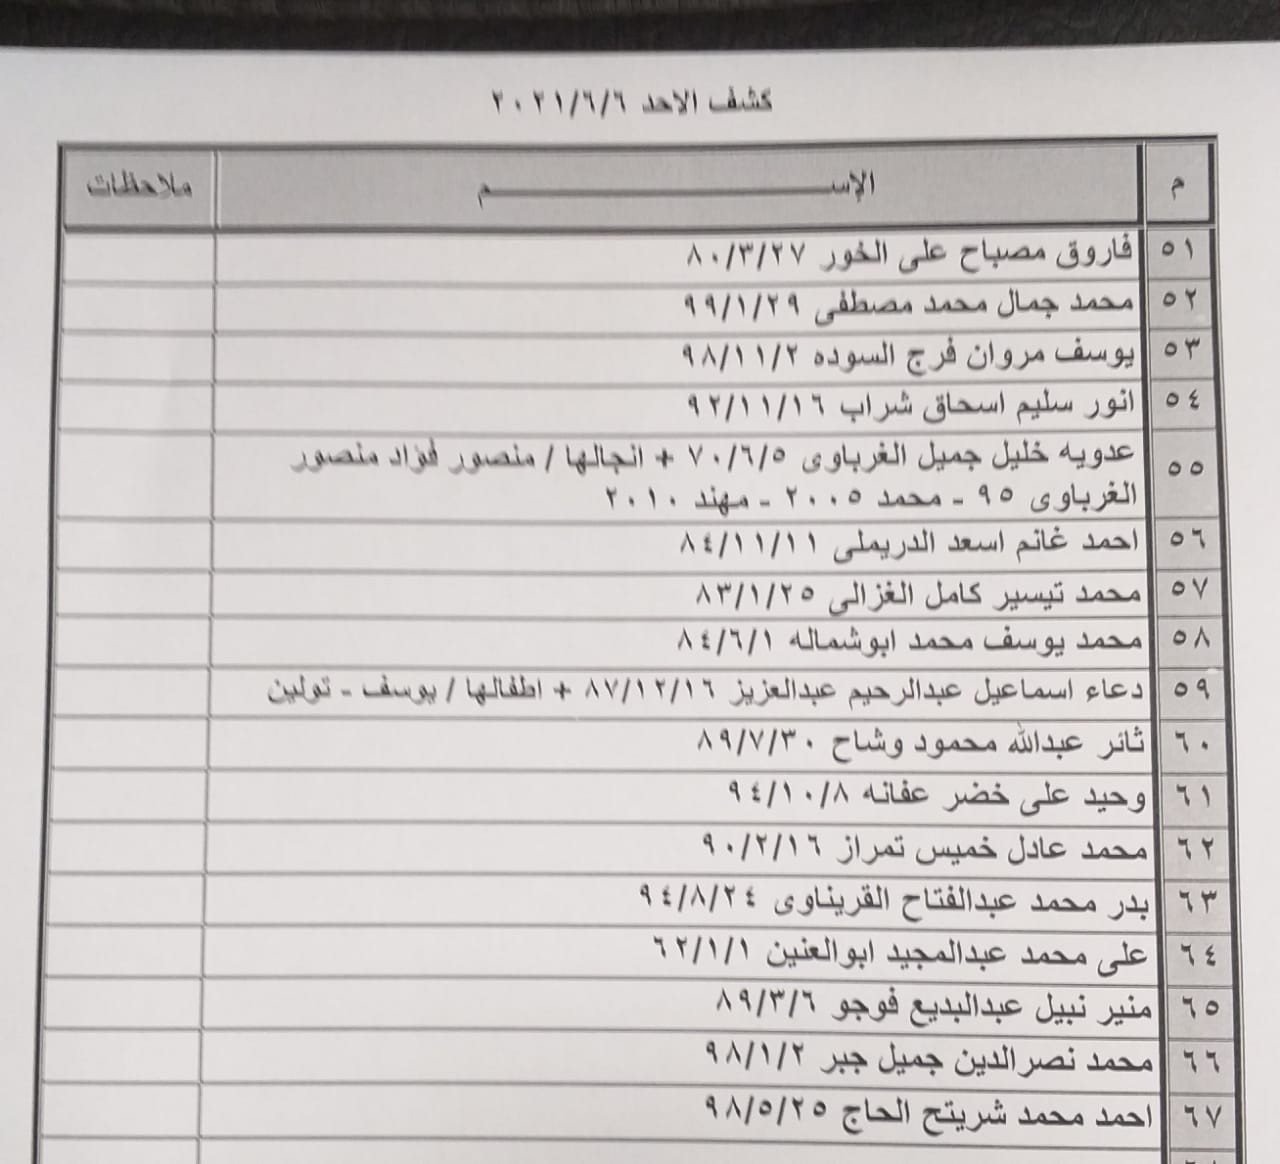 كشف الاحد ٢٠٢١/٦/٦
م الإســـــــــــــم ملاحظات
٥١ فاروق مصباح على الخور ٨٠/٣/٢٧
٥٢ محمد جمال محمد مصطفى ٩٩/١/٢٩
٥٣ يوسف مروان فرج السوده ٩٨/١١/٢
٥٤ انور سليم اسحاق شراب ٩٢/١١/١٦
٥٥ عدويه خليل جميل الغرباوى ٧٠/٦/٥ + انجالها / منصور فؤاد منصور
الغرباوى ٩٥ - محمد ٢٠٠٥ - مهند ٢٠١٠
٥٦ احمد غانم اسعد الدريملى ٨٤/١١/١١
٥٧ محمد تيسير كامل الغزالى ٨٣/١/٢٥
٥٨ محمد يوسف محمد ابوشماله ٨٤/٦/١
٥٩ دعاء اسماعيل عبدالرحيم عبدالعزيز ٨٧/١٢/١٦ + اطفالها / يوسف - تولين
٦٠ ثائر عبدالله محمود وشاح ٨٩/٧/٣٠
٦١ وحيد على خضر عفانه ٩٤/١٠/٨
٦٢ محمد عادل خميس تمراز ٩٠/٢/١٦
٦٣ بدر محمد عبدالفتاح القريناوى ٩٤/٨/٢٤
٦٤ على محمد عبدالمجيد ابوالعنين ٦٢/١/١
٦٥ منير نبيل عبدالبديع فوجو ٨٩/٣/٦
٦٦ محمد نصرالدين جميل جبر ٩٨/١/٢
٦٧ احمد محمد شريتح الحاج ٩٨/٥/٢٥